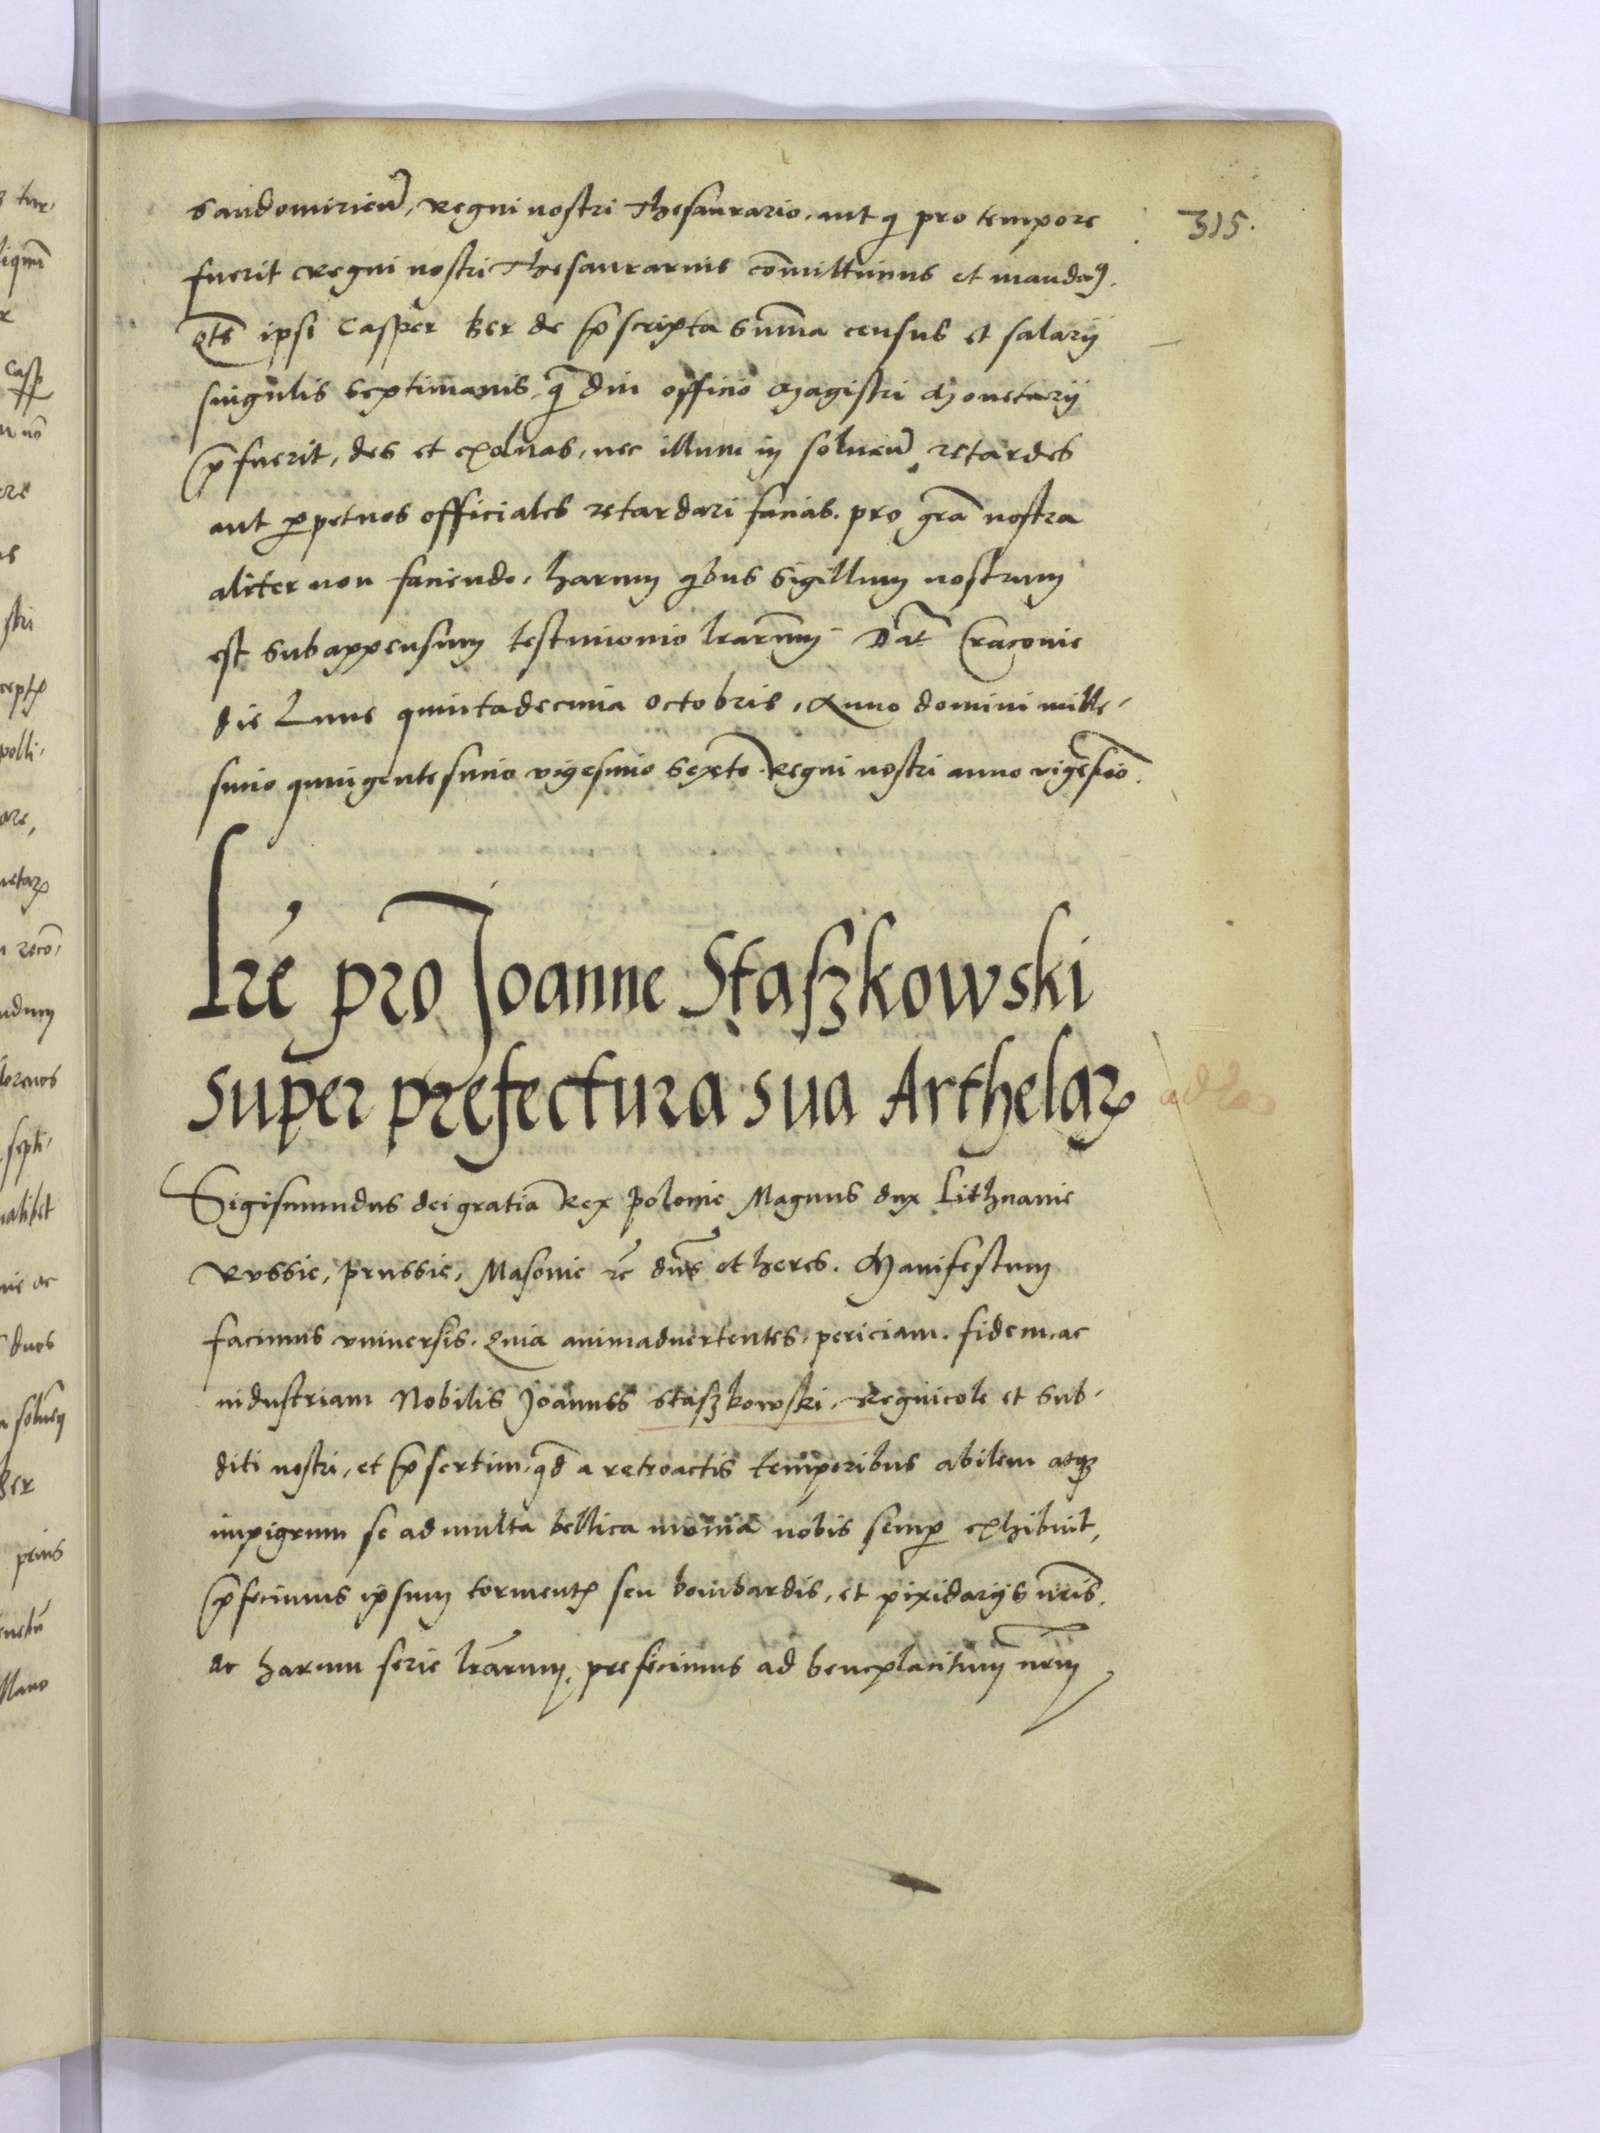 315.
Sandomirien̄, Regni nostri Thesaurario, aut q̄ pro tempore
fuerit Regni nostri Thesaurarius com̄ittimus et mandaꝰ.
q̄te ipsi Casper Ber de p̄scripta sum̄a census et salarij
singulis septimanis, q̄ diu officio Magistri Monetarij
p̄fuerit, des et exolvas, nec illum in soluen̄ retardes
aut ꝑpetuos officiales retardari facias. pro gr̄a nostra
aliter non faciendo, harum q̄bus Sigillum nostrum
est subappensum testimonio lrarum̄. Dat̄ Cracovie
die Lune quintadecima Octobris, Anno domini mille-
simo quingentesimo vigesimo sexto. Regni nostri anno vigesīo.
Lr̄e pro Joanne Staszkowski
super prefectura sua Arthelaꝝ
Sigismundus dei gratia Rex Polonie Magnus dux Lithuanie
Russie, Prussie, Masovie ec̄ dn̄s et heres. Manifestum
facimus vniversis. Quia animadvertentes, periciam. fidem. ac
industriam Nobilis Joannes Staszkowski, Regnicole et sub-
diti nostri, et p̄sertim, qd̄ a retroactis temporibus abilem atqꝫ
impigrum se ad multa bellica munia nobis semꝑ exhibuit,
p̄fecimus ipsum tormentꝭ seu bombardis, et pixidarijs nr̄is.
ac harum serie lr̄arum, prefecimus ad beneplacitum nr̄m